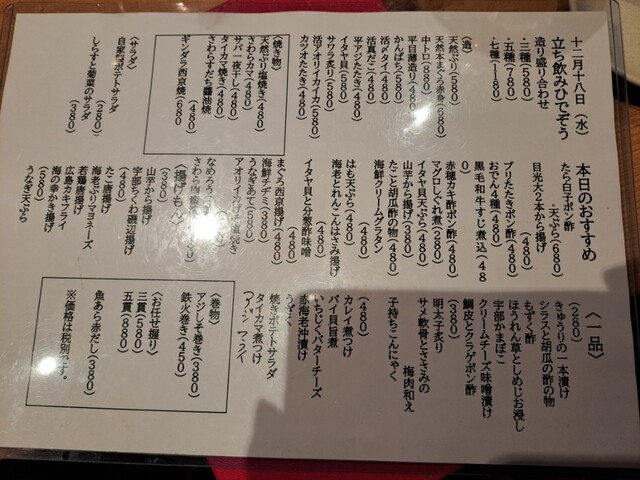 十二月十八日（水）
立ち飲みひでぞう
造り盛り合わせ
・三種（580）
・五種（780）
・七種（1180）
〈造〉
天然ぶり（580）
天然本まぐろ赤身（680）
中トロ（880）
平目薄造り（480）
かんぱち（580）
活〆タイ（480）
活真だこ（480）
平アジたたき（480）
イタヤ貝（580）
サワラ炙り（580）
活アオリイカ（580）
カツオたたき（480）
〈焼き物〉
天然ぶり塩焼き（480）
さわらカマ（480）
サバ一夜干し（480）
タイカマ焼き（480）
さわらすだち醤油焼
ギンダラ西京焼（680）
〈サラダ〉
自家製ポテトサラダ
（280）
しらすと菊菜のサラダ
（380）
本日のおすすめ
たら白子ポン酢
・天ぷら（680）
目光大2本から揚げ
（480）
ブリたたきポン酢（480）
おでん4種（480）
黒毛和牛すじ煮込（480）
赤穂カキ酢ポン酢（480）
マグロしぐれ煮（280）
イタヤ貝天ぷら（480）
山芋から揚げ（380）
たこと胡瓜酢の物（480）
海鮮クリームグラタン
（480）
はも天ぷら（480）
海老とれんこんはさみ揚げ
（480）
イタヤ貝と分葱酢味噌
（480）
まぐろ西京揚げ（480）
海鮮チヂミ（380）
うなぎあて（580）
〈揚げもん〉
山芋から揚げ
（380）
宇部ちくわ磯辺揚げ
（480）
たこ唐揚げ
海老ぷりマヨネーズ
若鶏唐揚げ
広島カキフライ
海の幸かき揚げ
（580）
うなぎ天ぷら
〈一品〉
（280）
きゅうりの一本漬け
シラスと胡瓜の酢の物
もずく酢
ほうれん草としめじお浸し
宇部かまぼこ
クリームチーズ味噌漬け
鯛皮とクラゲポン酢
（380）
明太子炙り
サメ軟骨とささみの
梅肉和え
子持ちこんにゃく
（480）
カレイ煮つけ
バイ貝旨煮
いちじくバターチーズ
赤海老沖漬け
うざく
焼きポテトサラダ
タイカマ煮つけ
〈巻物〉
アジしそ巻き（380）
鉄火巻き（450）
〈お任せ握り〉
三貫（580）
五貫（880）
魚あら赤だし（380）
※価格は税別です。